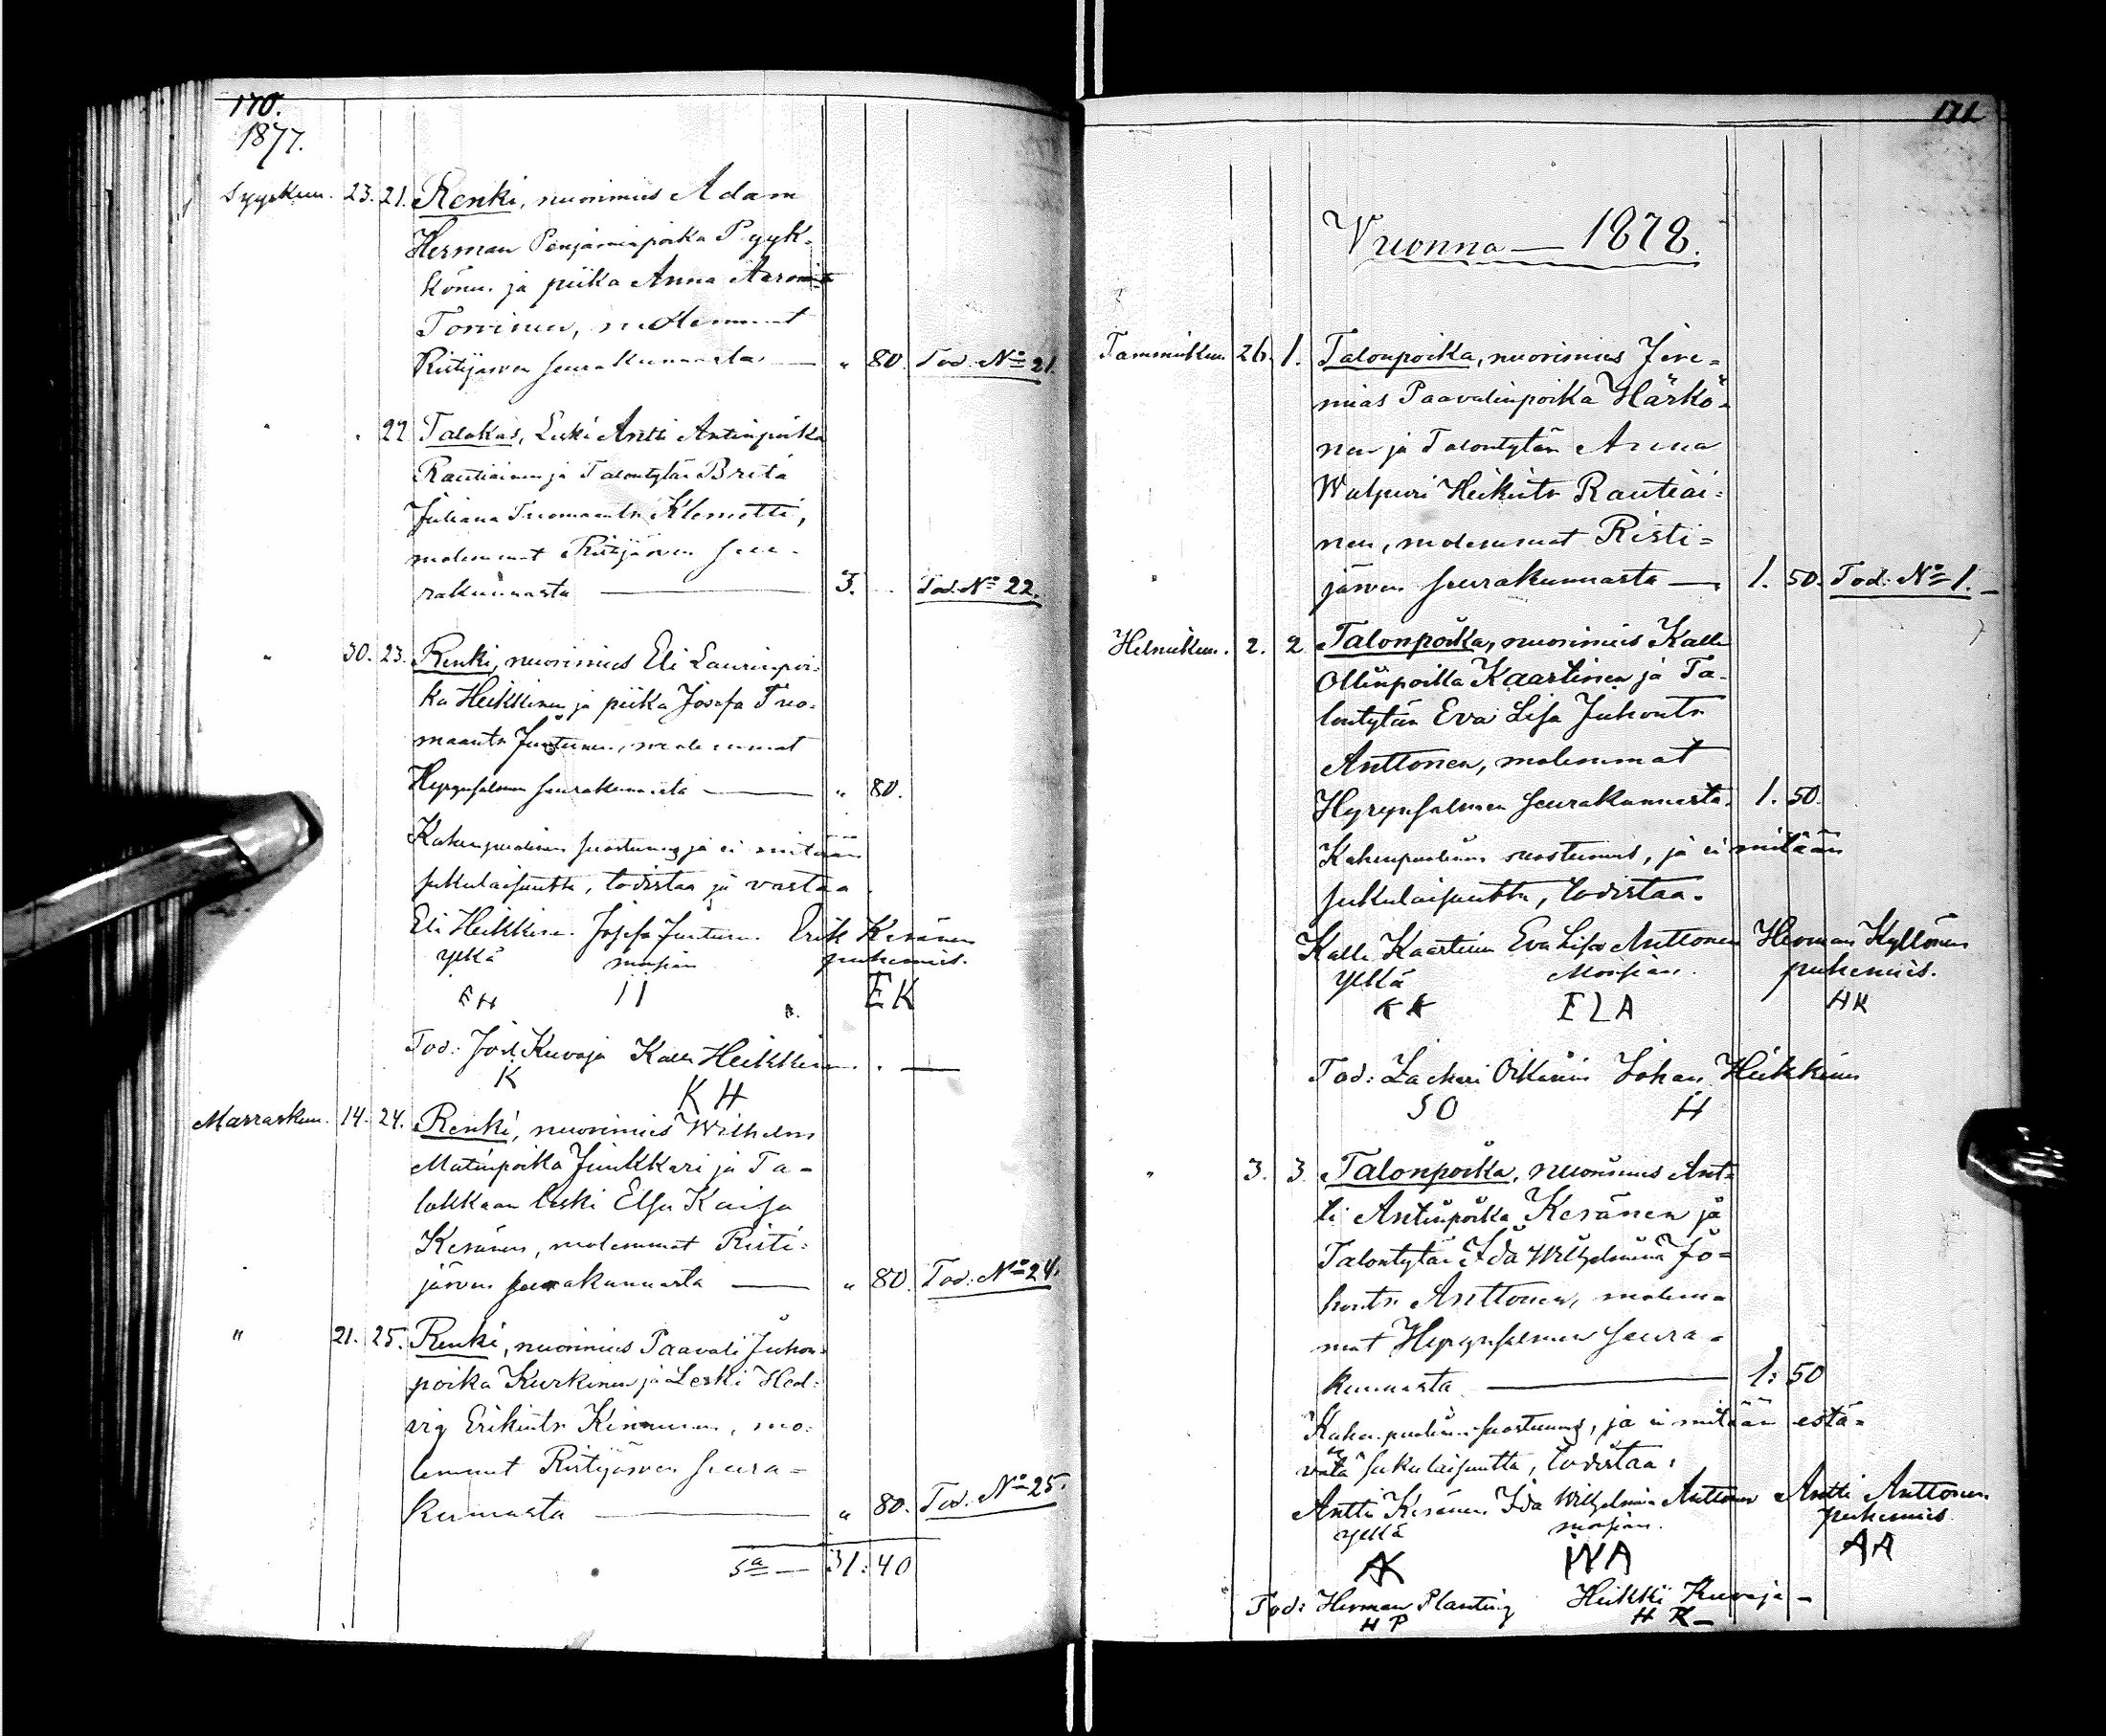 170.
1877.
Syyskuu. 23. 21. Renki, nuorimies Adam
Herman Penjaminpoika Pyyk-
könen ja piika Anna Aarontr
Torvinen, molemmat
Ristijärven seurakunnasta — „ 80. Tod. No 21.
" . 22 Talokas, Leski Antti Antinpoika
Rautiainen ja Talontytär Brita
Juliana Tuomaantr Klemetti,
molemmat Ristijärven seu-
rakunnasta — 3. .. Tod. No 22.
" 30. 23. Renki, nuorimies Eli Laurinpoi-
ka Heikkinen ja piika Josefa Tuo-
maantr Juntunen, molemmat
Hyrynsalmen seurakunnasta — „ 80.
Kahenpuolinen suostumus ja ei mitään
sukulaisuutta, todistaa ja vastaa
Eli Heikkinen. Josefa Juntunen. Erik Keränen
ylkä morsian puhemies.
EH JJ EK
Tod: Joh. Kuvaja Kalle Heikkinen. . —
K KH
Marraskuu. 14. 24. Renki, nuorimies Wilhelm
Matinpoika Juukkari ja Ta-
lokkaan leski Elsa Kaisa
Keränen, molemmat Risti-
järven seurakunnasta — „ 80. Tod: No 24.
" 21. 25. Renki, nuorimies Paavali Juhon-
poika Kurkinen ja Leski Hed-
vig Erikintr Kinnunen, mo-
lemmat Ristijärven seura-
kunnasta — „ 80. Tod. No 25.
Sa — 31:40
171
Vuonna — 1878.
Tammikuu. 26. 1. Talonpoika, nuorimies Jere-
mias Paavalinpoika Härkö-
nen ja Talontytär Anna
Walpuri Heikintr Rautiai-
nen, molemmat Risti-
järven seurakunnasta — 1. 50. Tod: No 1. –
Helmikuu. 2. 2 Talonpoika, nuorimies Kalle
Ollinpoika Kaartinen ja Ta-
lontytär Eva Lisa Juhontr
Anttonen, molemmat
Hyrynsalmen seurakunnasta. 1. 50.
Kahenpuolinen suostumus, ja ei mitään
sukulaisuutta, todistaa.
Kalle Kaartinen Eva Lisa Anttonen Herman Kyllönen
Ylkä Morsian. puhemies.
KK ELA HK
Tod: Zackeri Oikarinen Johan Heikkinen
SO H
" 3. 3. Talonpoika, nuorimies Ant-
ti Antinpoika Keränen ja
Talontytär Ida Wilhelmiina Jo-
hontr Anttonen, molem-
mat Hyrynsalmen seura-
kunnasta — 1: 50
Kahenpuolinen suostumus, ja ei mitään estä-
vätä sukulaisuutta, todistaa:
Antti Keränen Ida Wilhelmiina Anttonen Antti Anttonen
ylkä morsian. puhemies
AK WA AA
Tod: Herman Planting Heikki Kuvaja –
HP HK –